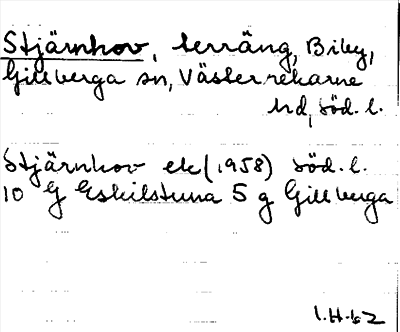 Stjärnhov, terräng, Biby,
Gillberga sn, Västerrekarne
hd, söd. l.
Stjärnhov ek (1958) söd. l.
10 G Eskilstuna 5 g Gillberga
1.H.62